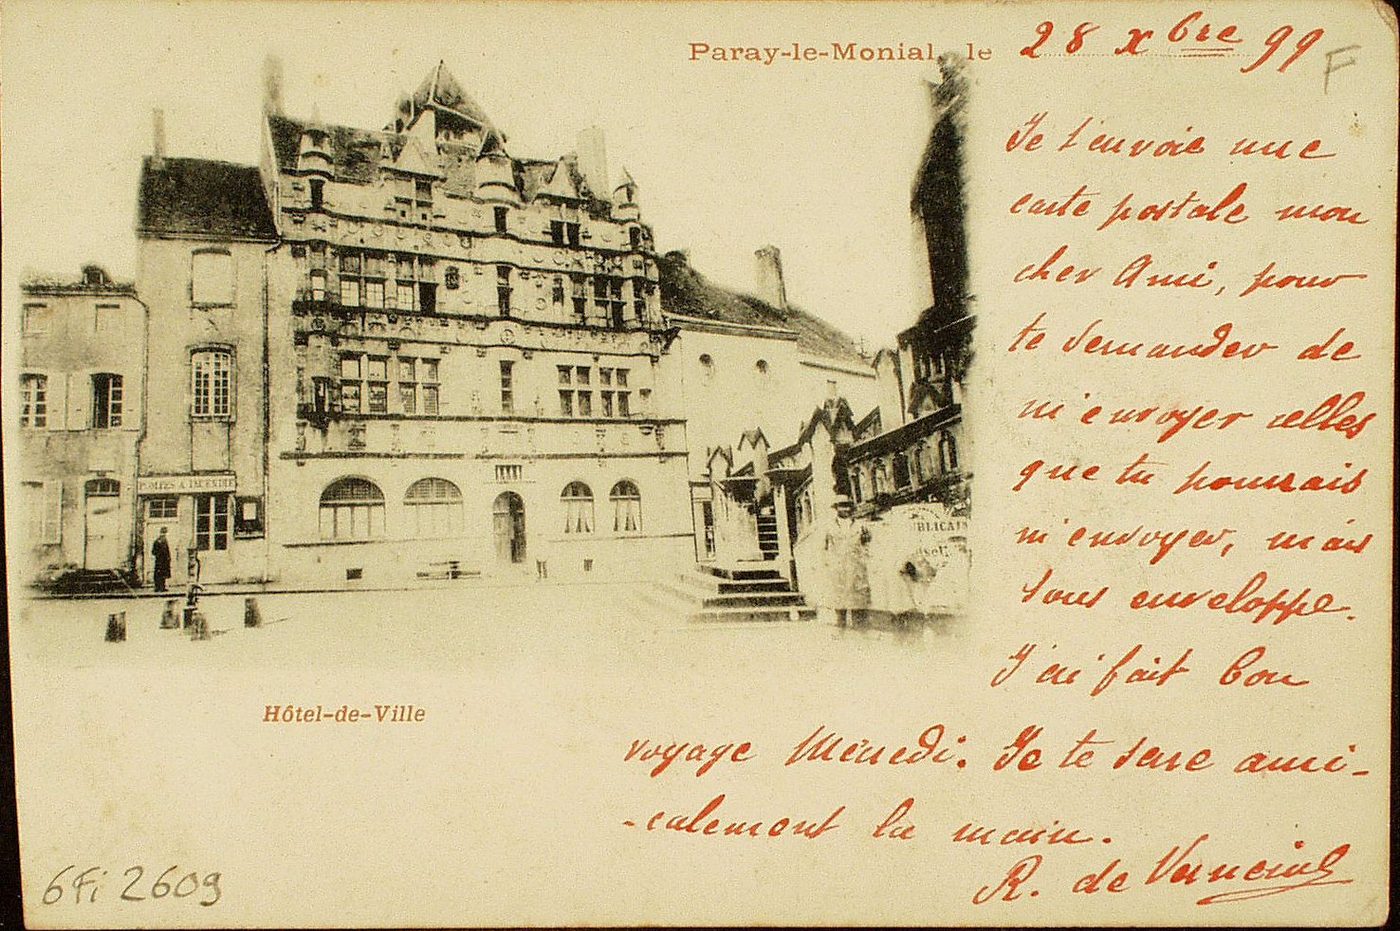 Paray-le-Monial, le 28 Xbre 99
F
Je t'envoie une
carte postale mon
cher Ami, pour
te demander de
m'envoyer celles
que tu pourrais
m'envoyer, mais
sous enveloppe.
J'ai fait bon
voyage Mercredi. Je te serre ami-
-calement la main.
R. de
POMPES A INCENDIE
BLICAIN
Hôtel-de-Ville
6Fi 2609